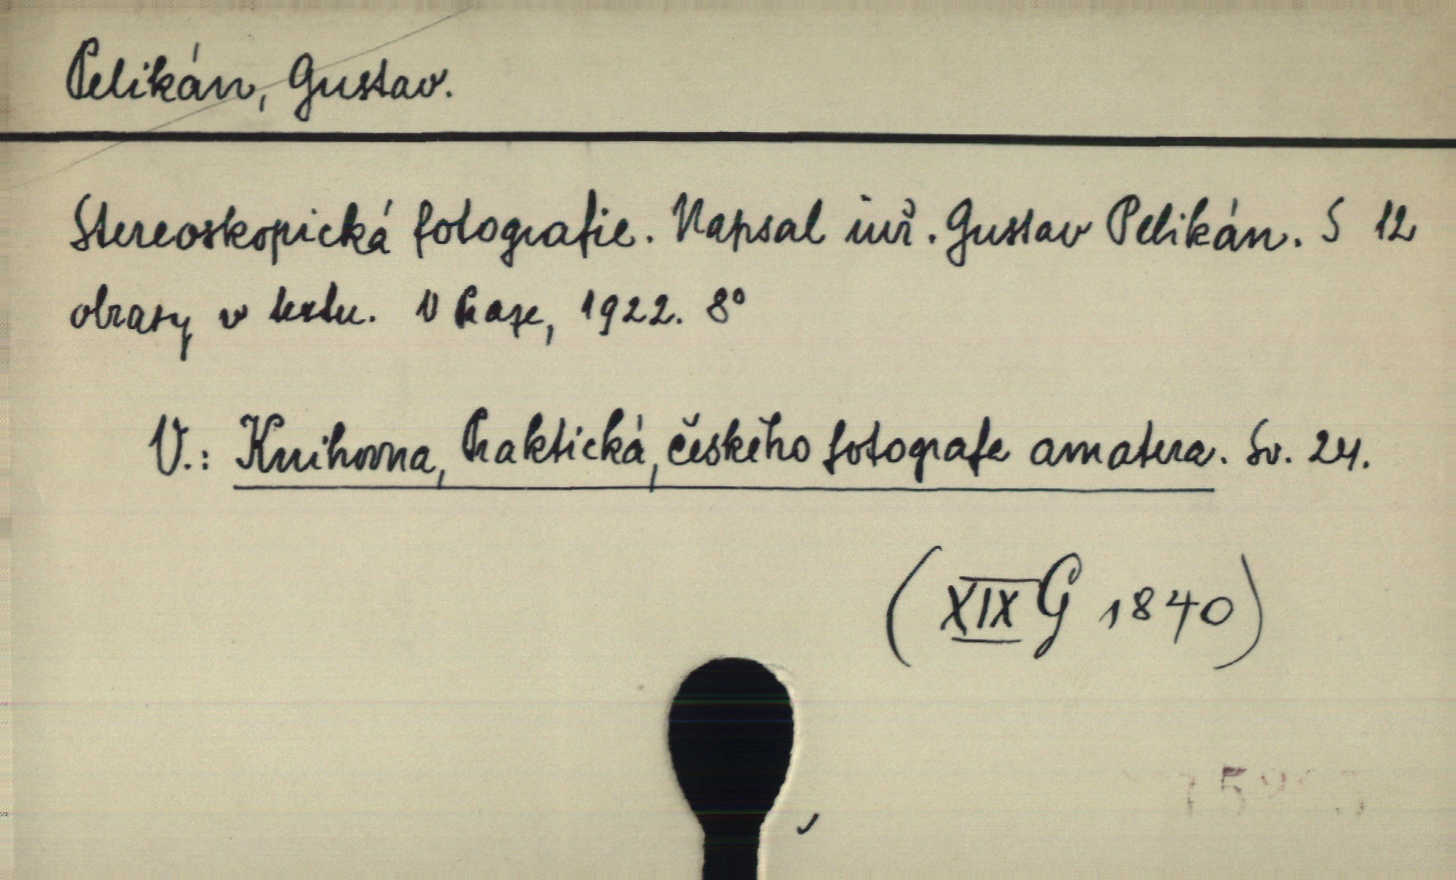 Pelikán, Gustav.
Stereoskopická fotografie. Napsal inž. Gustav Pelikán. S 12
obrazy v textu. V Praze, 1922. 8°
V.: Knihovna, Praktická, českého fotografa amatera. Sv. 24.
(XIX G 1840)